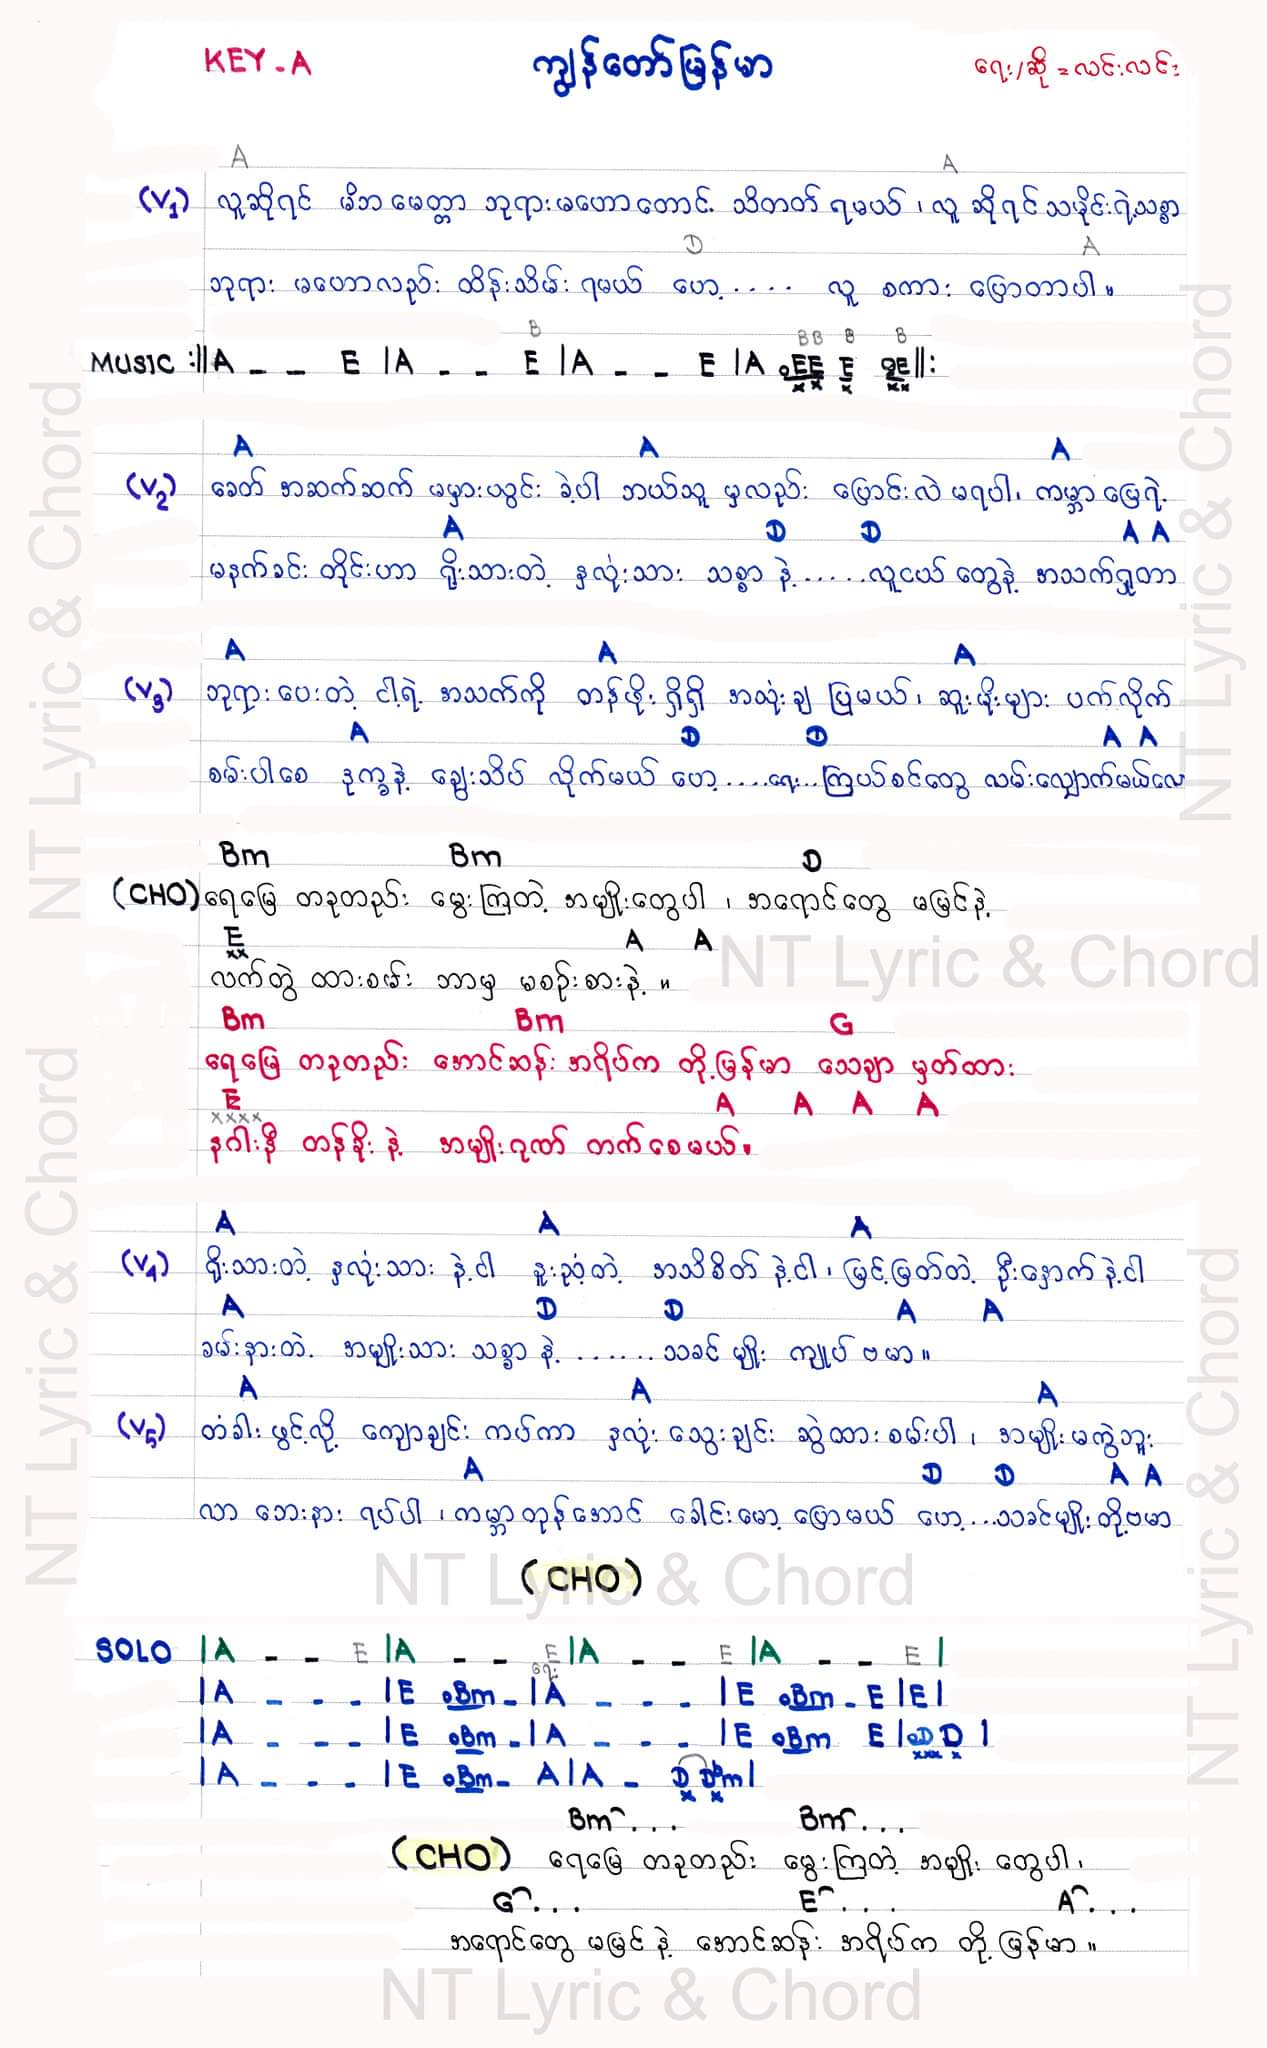 KEY - A ကျွန်တော်မြန်မာ ရေး/ဆို = လင်းလင်း
A A
(V1) လူဆိုရင် မိဘမေတ္တာ ဘုရားမဟောတောင် သိတတ် ရမယ်၊ လူ ဆိုရင် သမိုင်းရဲ့သစ္စာ
D A
ဘုရား မဟောလည်း ထိန်းသိမ်း ရမယ် ဟေ့.... လူ စကား ပြောတာပါ။
B BB B B
MUSIC :||A _ _ E |A _ _ E |A _ _ E |A .EE E ÷E||:
xx x xx
A A A
(V2) ခေတ် အဆက်ဆက် မမှားယွင်း ခဲ့ပါ ဘယ်သူ မှလည်း ပြောင်းလဲ မရပါ၊ ကမ္ဘာမြေရဲ့
A D D A A
မနက်ခင်း တိုင်းဟာ ရိုးသားတဲ့ နှလုံးသား သစ္စာ နဲ့......လူငယ် တွေနဲ့ အသက်ရှူတာ
A A A
(V3) ဘုရား ပေးတဲ့ ငါ့ရဲ့ အသက်ကို တန်ဖိုး ရှိရှိ အသုံးချ ပြမယ်၊ ဆူးမိုးများ ပက်လိုက်
A D D A A
စမ်းပါစေ ဒုက္ခနဲ့ ချွေးသိပ် လိုက်မယ် ဟေ့....ရေး..ကြယ်စင်တွေ လမ်းလျှောက်မယ်လေ
Bm Bm D
(CHO) ရေမြေ တခုတည်း မွေးကြတဲ့ အမျိုးတွေပါ ၊ အရောင်တွေ မမြင်နဲ့
E A A
xx
လက်တွဲ ထားစမ်း ဘာမှ မစဉ်းစားနဲ့ ။
Bm Bm G
ရေမြေ တခုတည်း အောင်ဆန်း အရိပ်က တို့မြန်မာ သေချာ မှတ်ထား
E A A A A
xxxx
နဂါးနီ တန်ခိုး နဲ့ အမျိုးဂုဏ် တက်စေမယ်။
A A A
(V4) ရိုးသားတဲ့ နှလုံးသား နဲ့ငါ နူးညံ့တဲ့ အသိစိတ် နဲ့ငါ၊ မြင့်မြတ်တဲ့ ဦးနှောက်နဲ့ငါ
A D D A A
ခမ်းနားတဲ့ အမျိုးသား သစ္စာ နဲ့ .......သခင် မျိုး ကျုပ် ဗမာ။
A A A
(V5) တံခါး ဖွင့်လို့ ကျောချင်း ကပ်ကာ နှလုံး သွေးချင်း ဆွဲထားစမ်းပါ ၊ အမျိုးမကွဲဘူး
A D D A A
လာ ဘေးနား ရပ်ပါ ၊ကမ္ဘာတုန်အောင် ခေါင်းမော့ ပြောမယ် ဟေ့...သခင်မျိုး တို့ဗမာ
(CHO)
SOLO |A _ _ E |A _ _ E |A _ _ E |A _ _ E |
ရေး
|A _ _ _ |E .Bm _ |A _ _ _ |E .Bm _ E |E|
|A _ _ _ |E .Bm _ |A _ _ _ |E .Bm E |.D D |
xxx x
|A _ _ _ |E .Bm _ A|A _ D D Bm|
x x
Bm... Bm...
(CHO) ရေမြေ တခုတည်း မွေးကြတဲ့ အမျိုး တွေပါ ၊
G... E.... A...
အရောင်တွေ မမြင် နဲ့ အောင်ဆန်း အရိပ်က တို့ မြန်မာ ။
NT Lyric & Chord
NT Lyric & Chord
NT Lyric & Chord
NT Lyric & Chord
NT Lyric & Chord
NT Lyric & Chord
NT Lyric & Chord